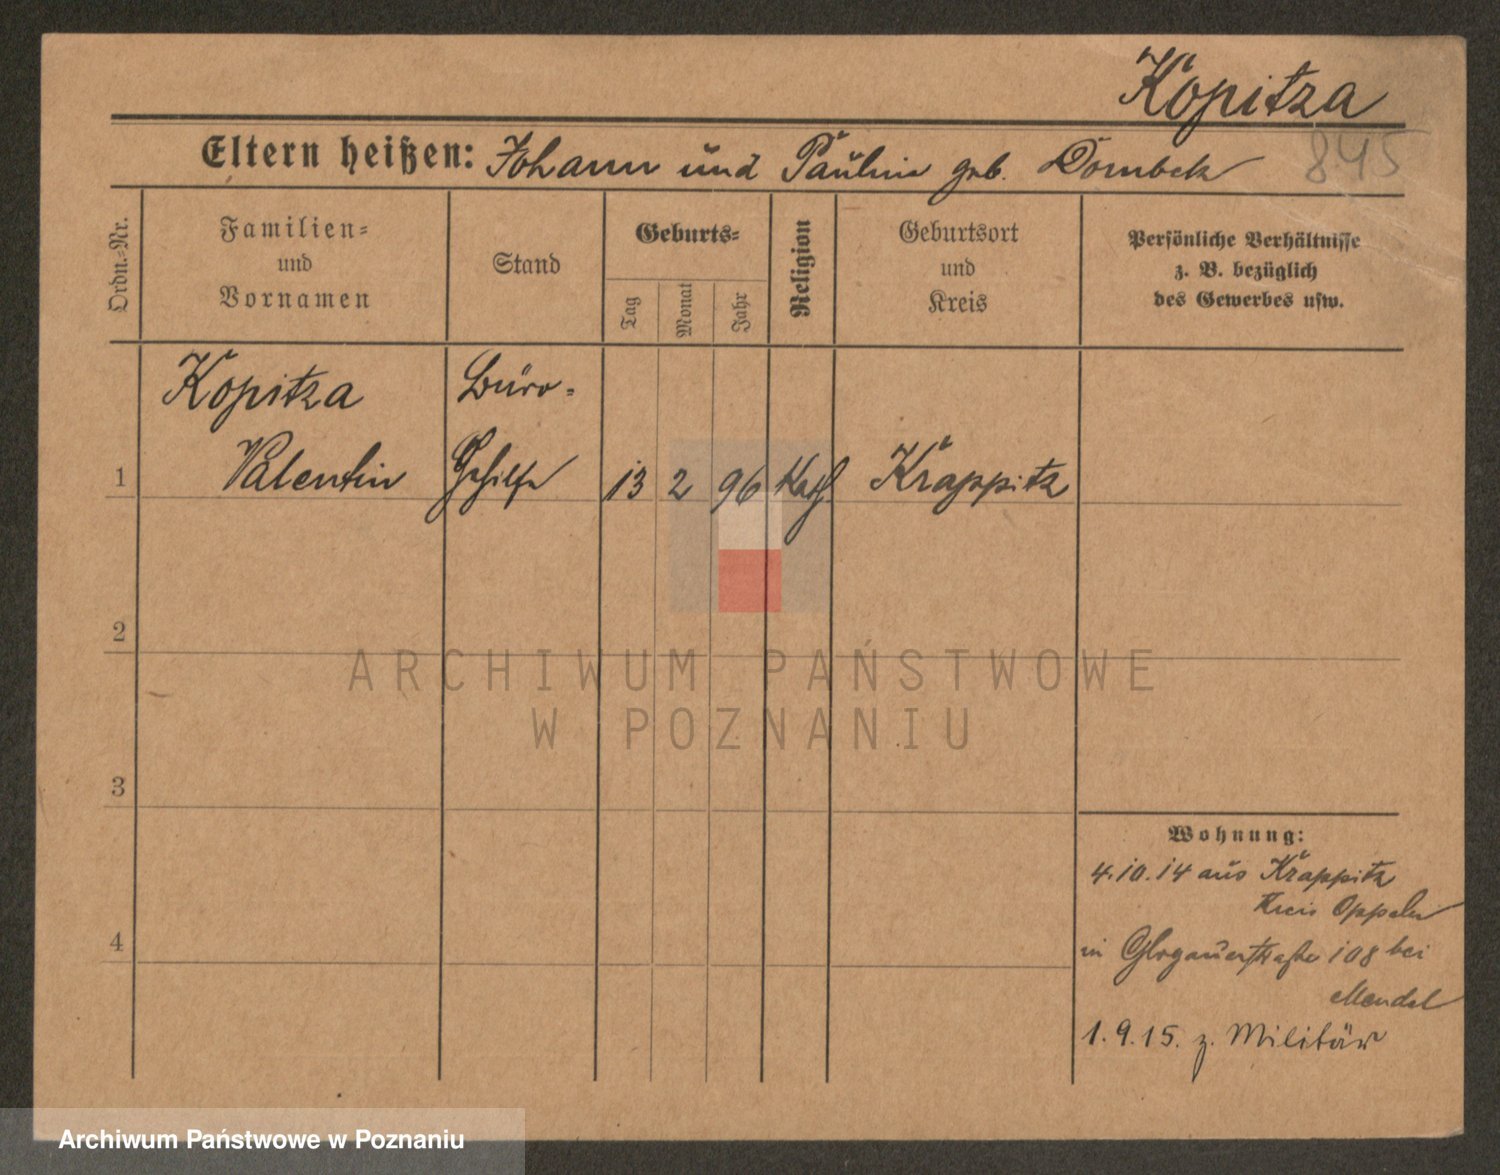 Kopitza
845
Eltern heißen: Johann und Pauline geb. Dombek
Ordn.-Nr.
Familien-
und
Vornamen
Stand
Geburts-
Tag
Monat
Jahr
Religion
Geburtsort
und
Kreis
Persönliche Verhältnisse
z. B. bezüglich
des Gewerbes usw.
Kopitza Büro-
1 Valentin Gehilfe 13 2 96 Kath Krappitz
2
ARCHIWUM PAŃSTWOWE
W POZNANIU
3
Wohnung:
4.10.14 aus Krappitz
Kreis Oppeln
in Glogauerstraße 108 bei
Mendel
4
1.9.15. z. Militär
Archiwum Państwowe w Poznaniu